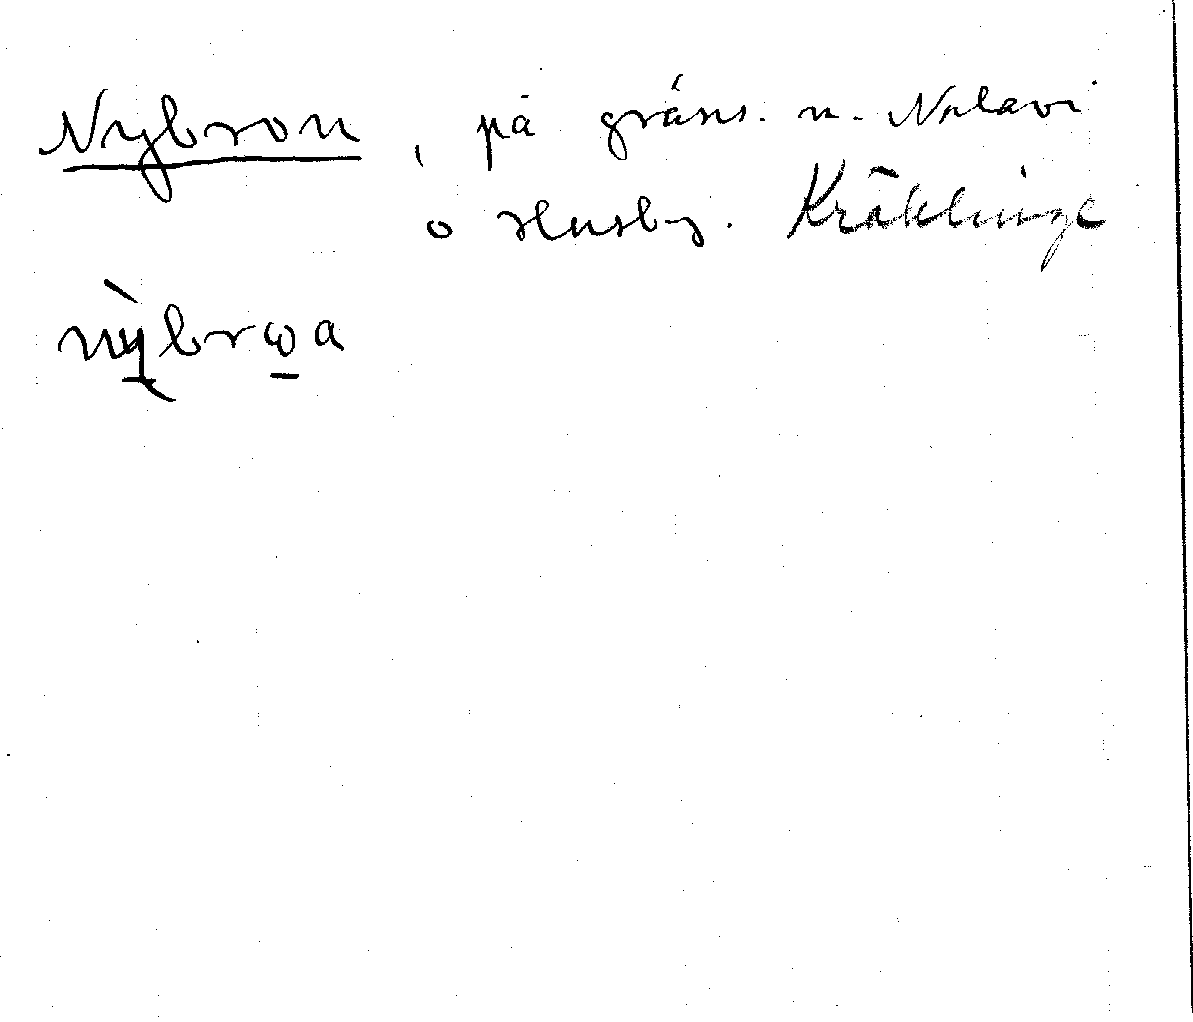 Nybron, på gräns. m. Nalavi
o Husby. Kräklinge
nybrωa